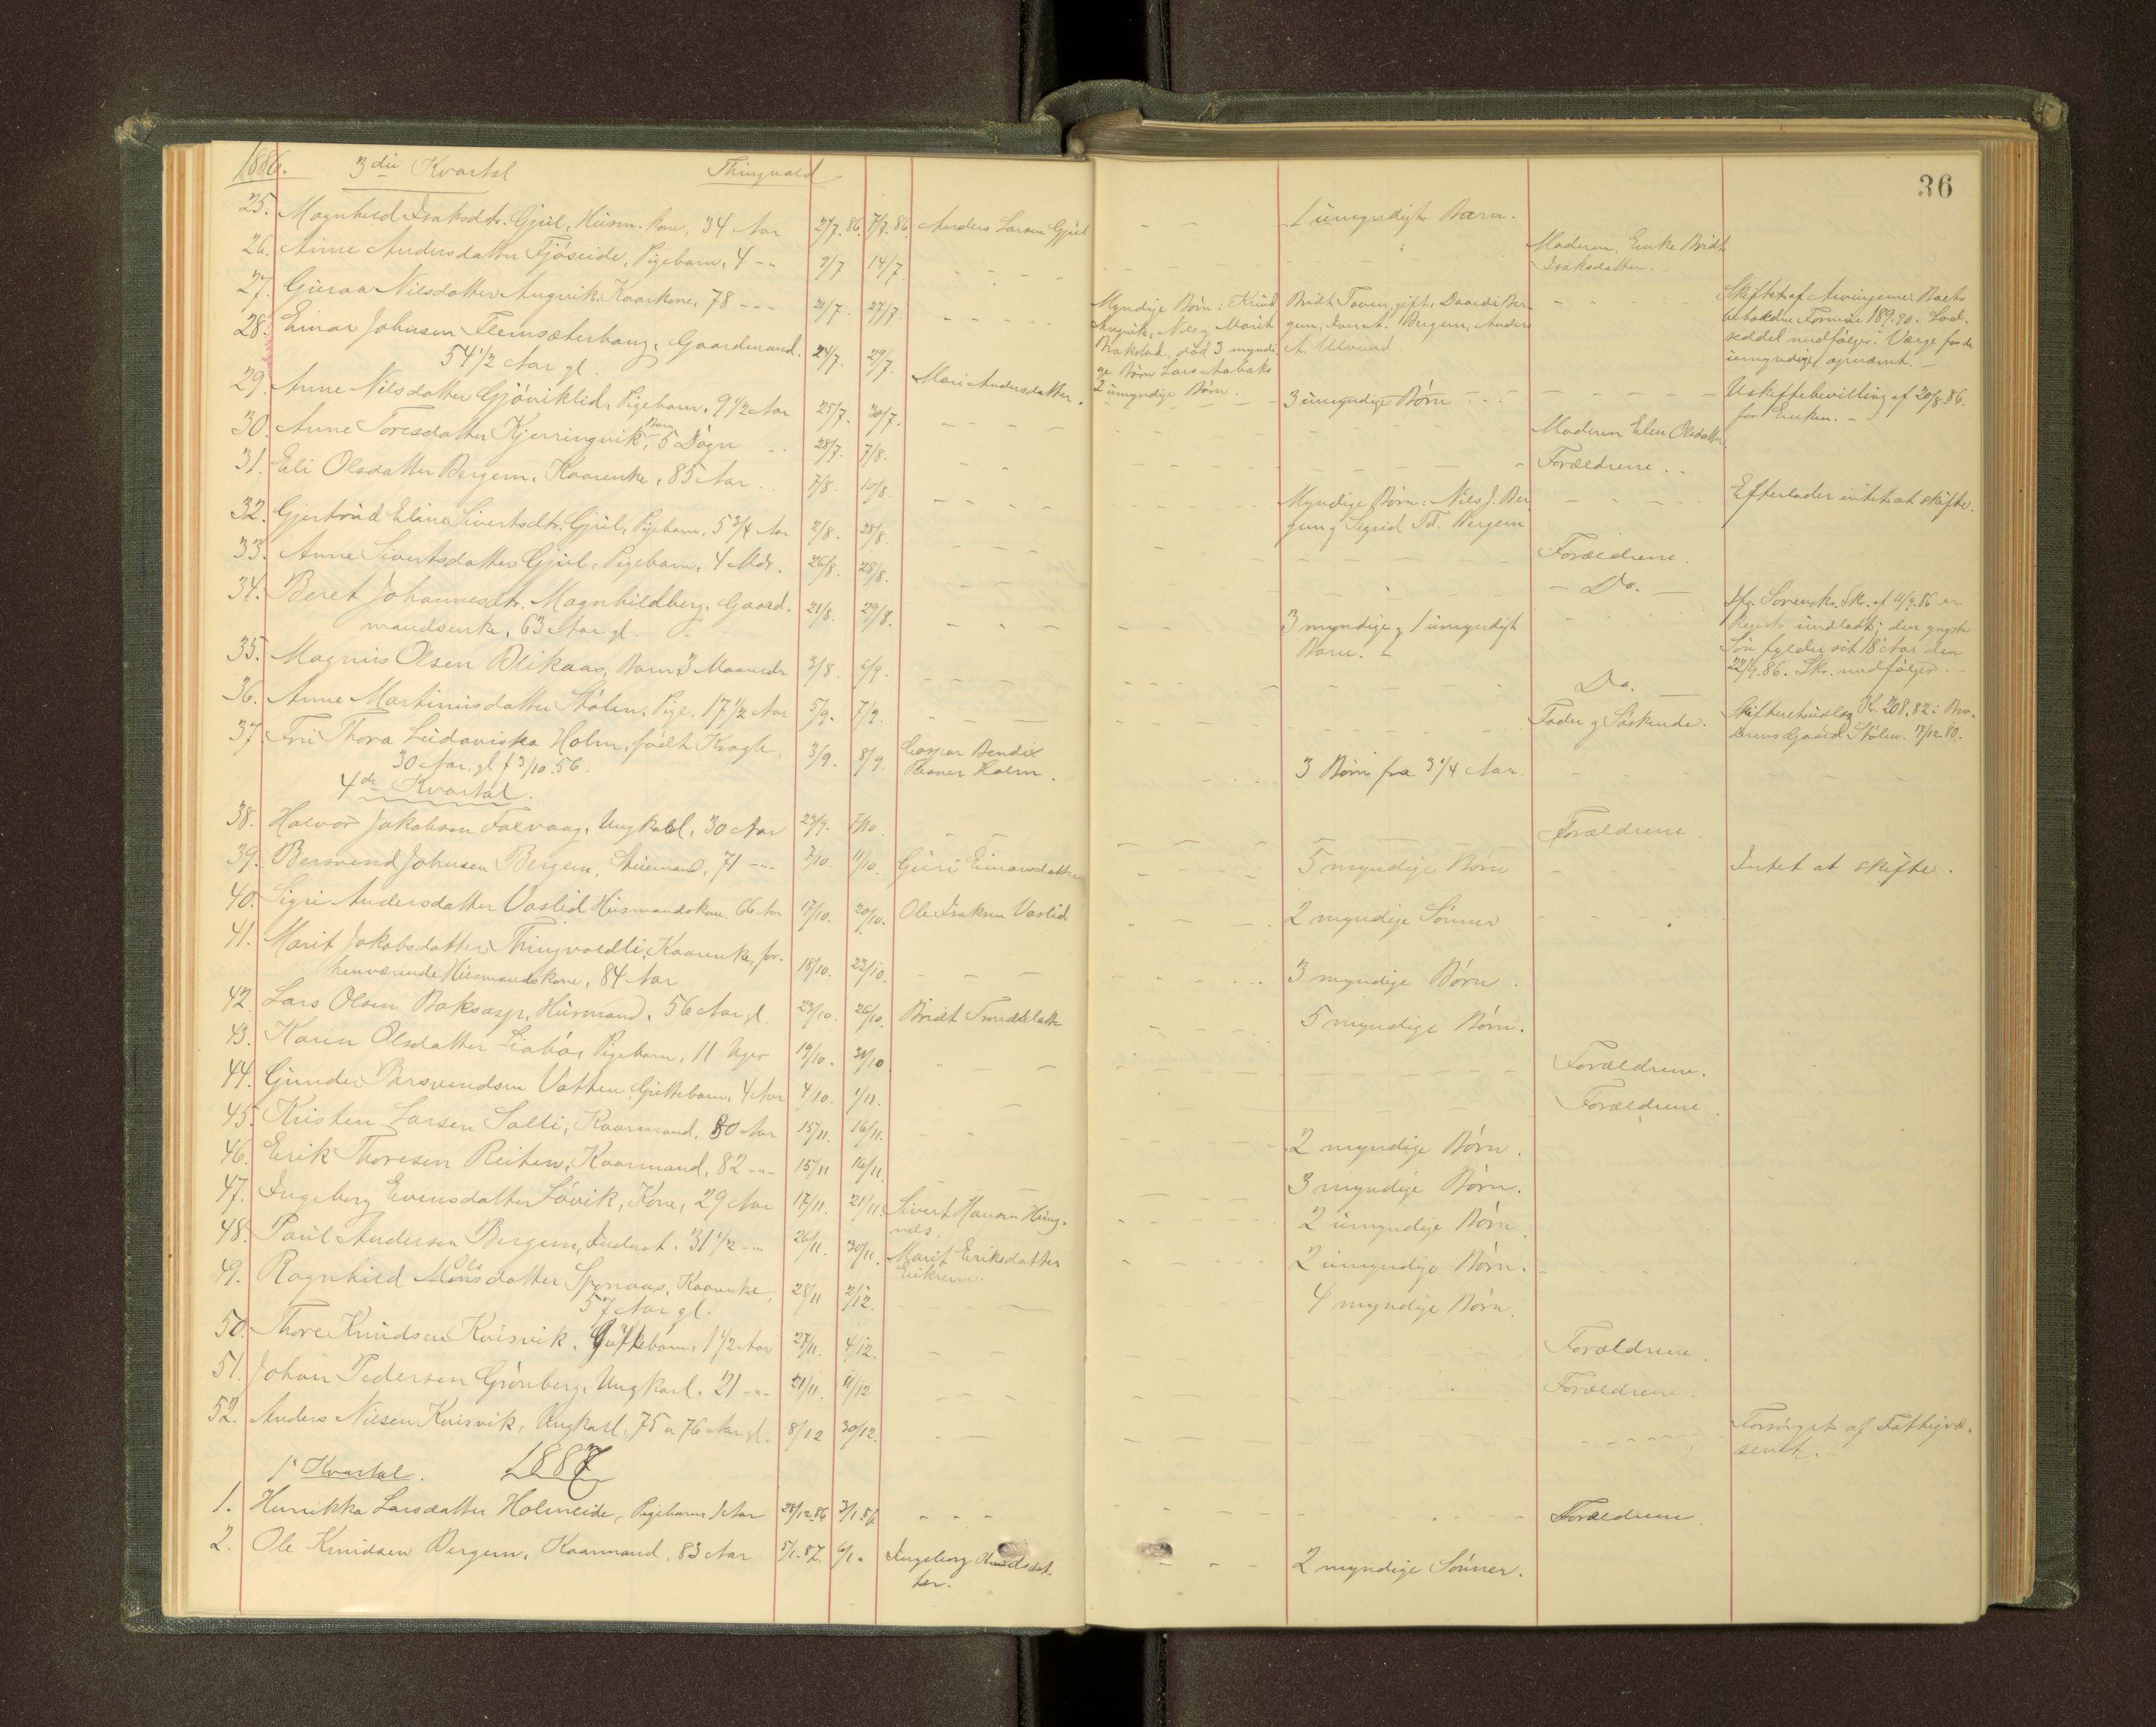 1886. 3die Kvartal Thingvold
36
25. Magnhild Isaksdtr. Gjül, Husm. Kone, 34 Aar 2/7.86. 7/7.86. Anders Larsen Gjül 1 umyndigt Barn.
26. Anne Andersdatter Fjøseide, Pigebarn, 4 -"- 2/7 14/7. Moderen, Enke Bridt
Isaksdatter.
27. Guraa Nilsdatter Angvik, Kaarkone, 78 -"- 21/7. 27/7. Myndige Børn: Knud
Angvik, Nils og Marit
død 3 myndi-
ge Børn Lars
2 umyndige Børn.
Bridt gift, Ber-
gem, Iver A. Bergem, Anders
A. Ulvund
Skiftet af Arvingerne
189.90.
seddel medfølger. Værge for de
umyndige opnævnt.
28. Einar Johnsen Flemsæterhaug, Gaardmand.
54 1/2 Aar gl. 24/7. 29/7. Mari Andersdatter. 3 umyndige Børn Uskiftebevilling af 20/8.86.
for Enken.
29. Anne Nilsdatter Gjøviklid, Pigebarn, 9 1/2 Aar 25/7. 30/7. Moderen Elen Olsdatter
30. Anne Toresdatter Kjerringvik, Barn 5 Døgn 28/7. 7/8. Forældrene.
31. Eli Olsdatter Bergem, Kaarenke, 85 Aar 7/8. 10/8. Myndige Børn: Nils J. Ber-
gem og Sigrid Bergem
Efterlader intet at skifte.
32. Gjertrud Elina Sivertsdtr. Gjül, Pigebarn, 5 3/4 Aar 2/8. 28/8. Forældrene.
33. Anne Sivertsdatter Gjül, Pigebarn, 4 Mdr. 26/8. 28/8. Do.
34. Beret Johannesdtr. Magnhildberg, Gaard-
mandsenke, 63 Aar gl. 21/8. 29/8. 3 myndige og 1 umyndigt
Barn.
Ifg. Sorensk. Skr. af 11/9.86 er
Registr. undladt; den yngste
Søn fylder sit 18 Aar den
22/9.86. Skr. medfølger.
35. Magnus Olsen Blikaas, Barn 3 Maaneder 3/8. Do.
36. Anne Martinusdatter Stølen, Pige, 17 1/2 Aar 5/9. 7/9. Fader og Søskende. Kr. 208,82 i Bro-
derens Gaard Stølen. 17/12.80.
37. Fru Thora Ludoviska Holm, født Krogh,
30 Aar gl. f 3/10.56. 3/9. 8/9. Caspar Bendix
Holm. 3 Børn fra 3 1/4 Aar.
4de Kvartal.
38. Halvor Jakobsen Foxvaag, Ungkarl, 30 Aar 23/9. 7/10. Forældrene.
39. Bersvend Johnsen Bergem, 71 -"- 7/10. 11/10. Guri Einarsdatter 5 myndige Børn Intet at skifte.
40. Sigri Andersdatter Vaslid Husmandskone, 66 Aar 17/10. 20/10. Ole Isaksen Vaslid 2 myndige Sønner
41. Marit Jakobsdatter Thingvoldli, Kaarenke, for-
henværende Husmandskone, 84 Aar 18/10. 23/10. 3 myndige Børn.
42. Lars Olsen Boksasp, Husmand, 56 Aar gl. 23/10. 26/10. Bridt Trondsdatter 5 myndige Børn.
43. Karen Olsdatter Liabø, Pigebarn, 11 Uger 19/10. 31/10 Forældrene.
44. Gunder Bersvendsen Vatten, Guttebarn, 4 Aar 4/10. 1/11. Forældrene.
45. Kristen Larsen Salli, Kaarmand, 80 Aar 15/11. 16/11. 2 myndige Børn.
46. Erik Thoresen Reiten, Kaarmand, 82 -"- 15/11 16/11. 3 myndige Børn.
47. Ingeborg Evensdatter Løvik, Kone, 29 Aar 17/11. 21/11. Sivert Hansen Hung-
næs. 2 umyndige Børn
48. Paul Andersen Bergem, Inderst. 31 1/2 -"- 26/11. 30/11. Marit Eriksdatter
Eikrem. 2 umyndige Børn.
49. Ragnhild Olsdatter Sponaas, Kaarenke,
57 Aar gl. 28/11 2/12. 4 myndige Børn.
50. Thore Knudsen Kvisvik, Guttebarn, 1 1/2 Aar 27/11. 4/12. Forældrene.
51. Johan Pedersen Grønberg, Ungkarl, 21 -"- 21/11. 11/12 Forældrene.
52. Anders Nilsen Kvisvik, Ungkarl, 75 a 76 Aar gl. 8/12 30/12. Forsørget af Fattigvæ-
senet.
1ste Kvartal. 1887
1. Henrikka Larsdatter Holmeide, Pigebarn 1 Aar 28/12.86 3/1.87 Forældrene.
2. Ole Knudsen Bergem, Kaarmand, 83 Aar 5/1.87. 6/1 " Ingeborg Knudsdat-
ter. 2 myndige Sønner.